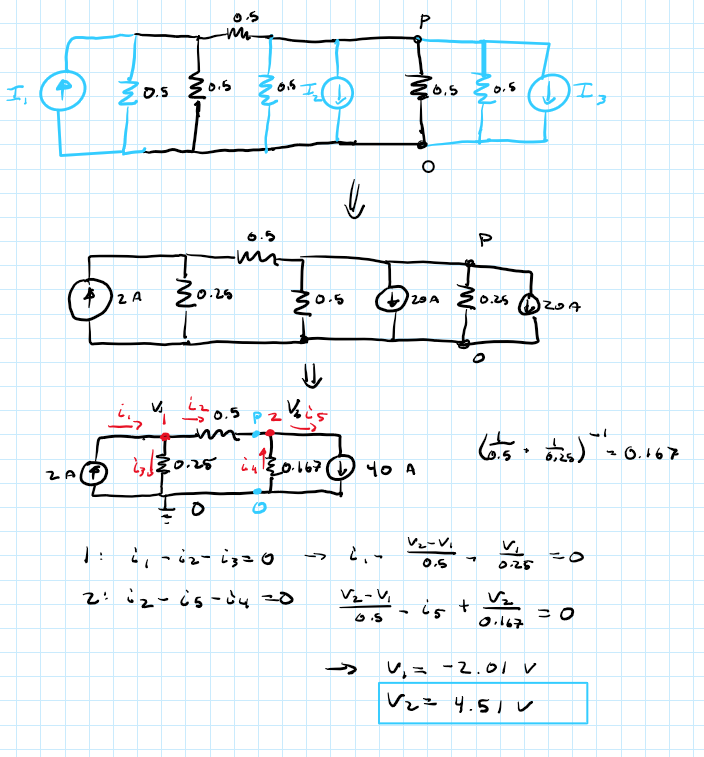 0.5 P
I₁ 0.5 0.5 0.5 I₂ 0.5 0.5 I₃
O
⇓
0.5 P
2 A 0.25 0.5 20A 0.25 20A
O
⇓
i₁ V₁ 1 i₂ 0.5 P 2 V₂ i₅
2 A i₃ 0.25 i₄ 0.167 40 A
O O
(1/0.5 + 1/0.25)⁻¹ = 0.167
1: i₁ - i₂ - i₃ = 0 → i₁ - (V₂-V₁)/0.5 - V₁/0.25 = 0
2: i₂ - i₅ - i₄ = 0 (V₂-V₁)/0.5 - i₅ + V₂/0.167 = 0
→ V₁ = -2.01 V
V₂ = 4.51 V